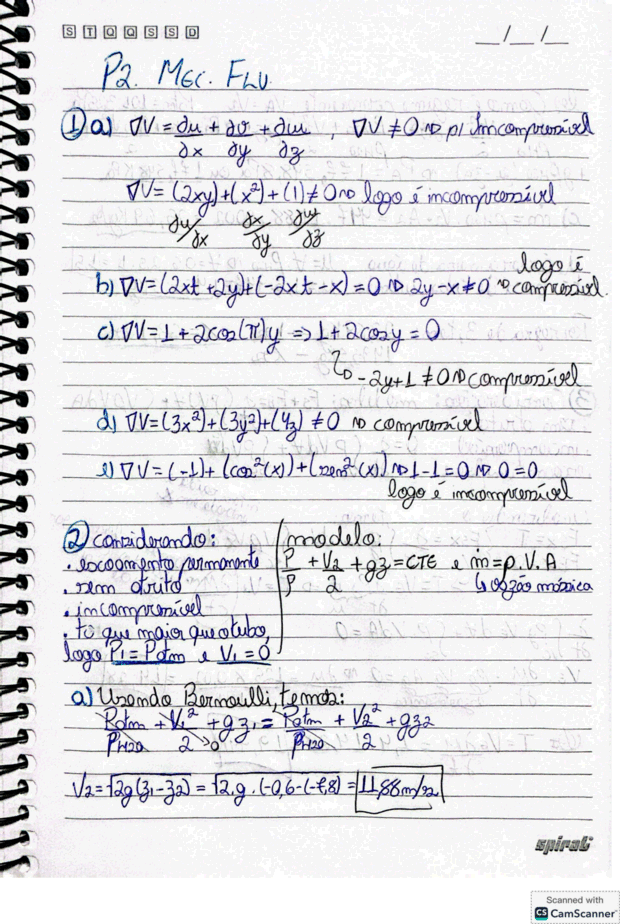 S T Q Q S S D
__/__/__
P2. MEC. FLU.
1 a) ∇V = ∂u/∂x + ∂v/∂y + ∂w/∂z , ∇V ≠ 0 → p/ Imcompressível
∇V = (2xy) + (x²) + (1) ≠ 0 → logo é imcompressível
∂u/∂x ∂x/∂y ∂w/∂z
b) ∇V = (2xt + 2y) + (-2xt - x) = 0 → 2y - x ≠ 0 → logo é compressível.
c) ∇V = 1 + 2cos(π)y => 1 + 2cosy = 0
↳ -2y+1 ≠ 0 → compressível
d) ∇V = (3x²) + (3y²) + (4z) ≠ 0 → compressível
e) ∇V = (-1) + (cos²(x)) + (sen²(x)) → 1-1 = 0 → 0 = 0
logo é imcompressível
2 considerando:
• escoamento permanente
• sem atrito
• imcompressível
• tq que maior que o tubo,
logo P1 = Patm e V1 = 0
modelo:
P/ρ + V2/2 + gz = CTE e ṁ = ρ.V.A
↳ vazão mássica
a) Usando Bernoulli, temos:
Patm/ρH2O + V1²/2 →0 + gz1 = Patm/ρH2O + V2²/2 + gz2
V2 = √2g(z1-z2) = √2.g.(-0,6-(-7,8) = 11,88m/s2
spiral
Scanned with
CS CamScanner